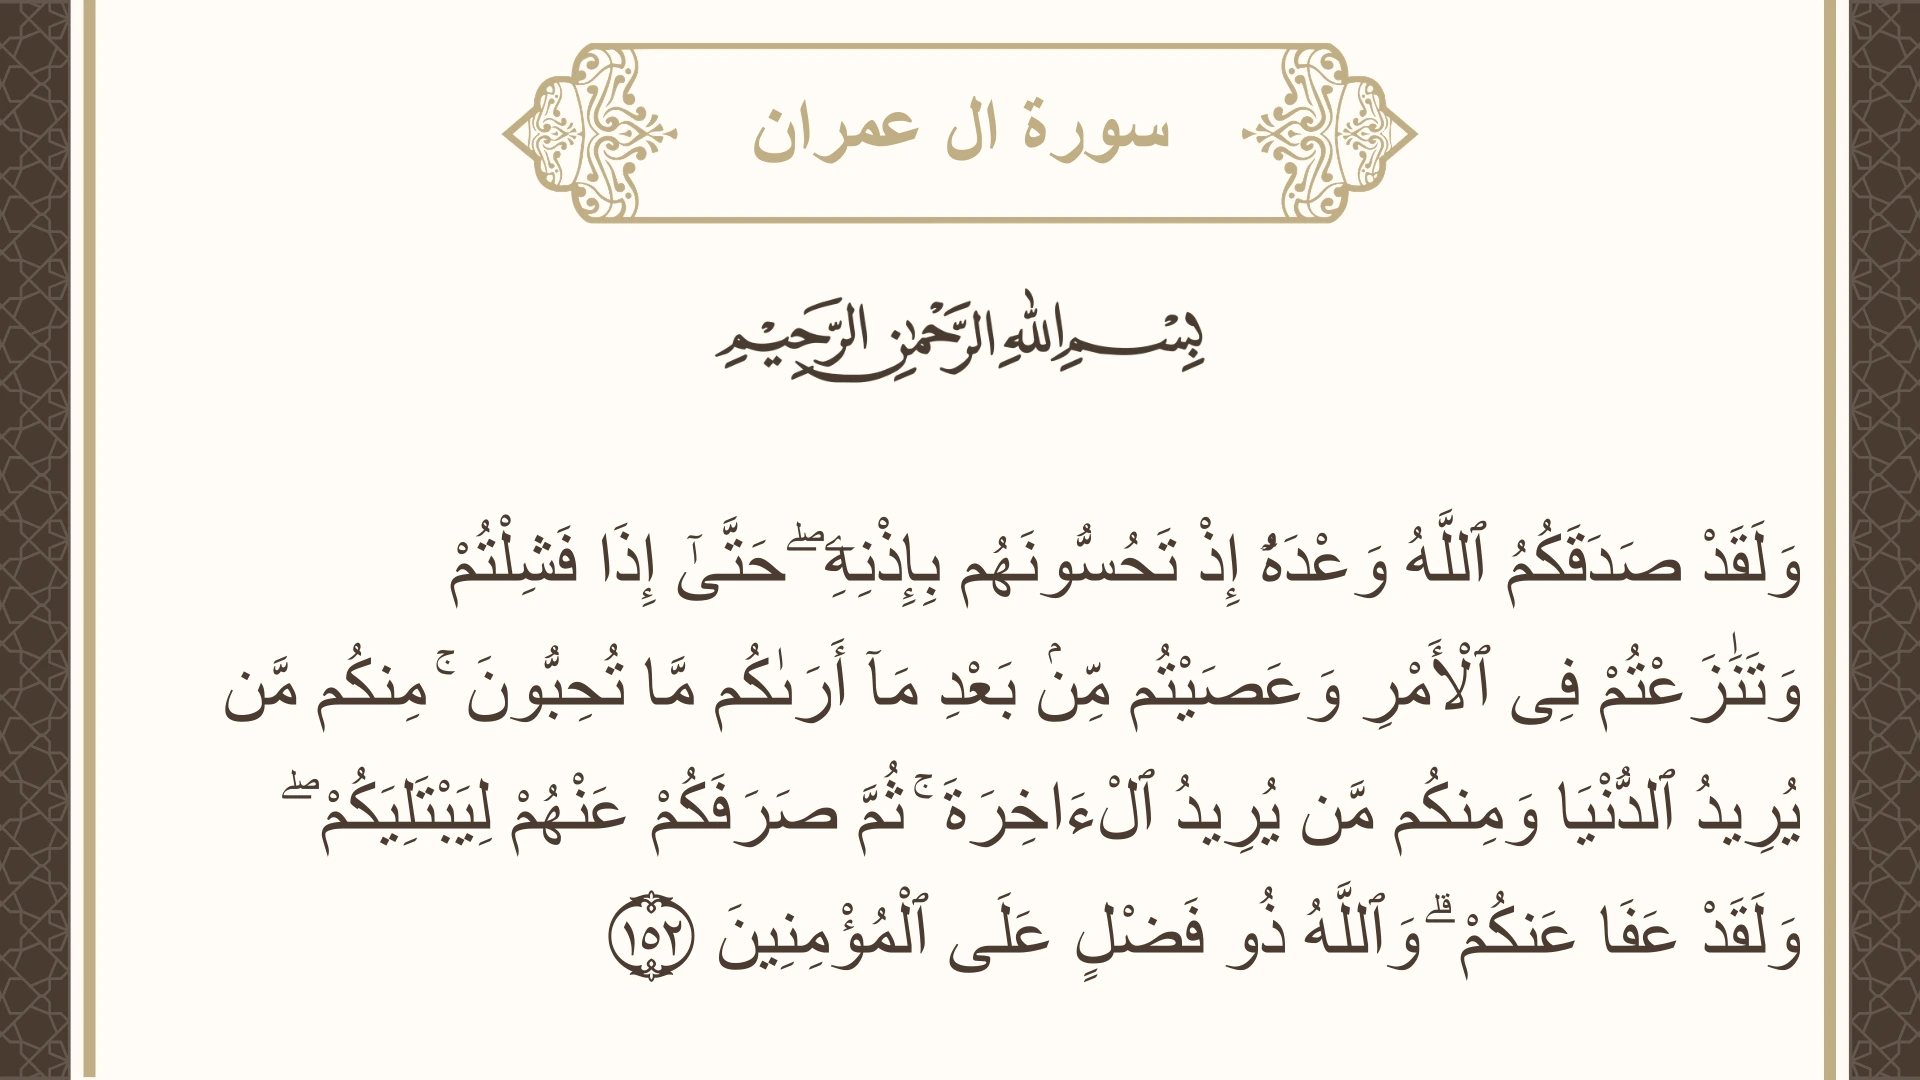 سورة ال عمران
بِسْمِ اللهِ الرَّحْمٰنِ الرَّحِيْمِ
وَلَقَدْ صَدَقَكُمُ ٱللَّهُ وَعْدَهُۥٓ إِذْ تَحُسُّونَهُم بِإِذْنِهِۦ ۖ حَتَّىٰٓ إِذَا فَشِلْتُمْ
وَتَنَـٰزَعْتُمْ فِى ٱلْأَمْرِ وَعَصَيْتُم مِّنۢ بَعْدِ مَآ أَرَىٰكُم مَّا تُحِبُّونَ ۚ مِنكُم مَّن
يُرِيدُ ٱلدُّنْيَا وَمِنكُم مَّن يُرِيدُ ٱلْـَٔاخِرَةَ ۚ ثُمَّ صَرَفَكُمْ عَنْهُمْ لِيَبْتَلِيَكُمْ ۖ
وَلَقَدْ عَفَا عَنكُمْ ۗ وَٱللَّهُ ذُو فَضْلٍ عَلَى ٱلْمُؤْمِنِينَ ١٥٢